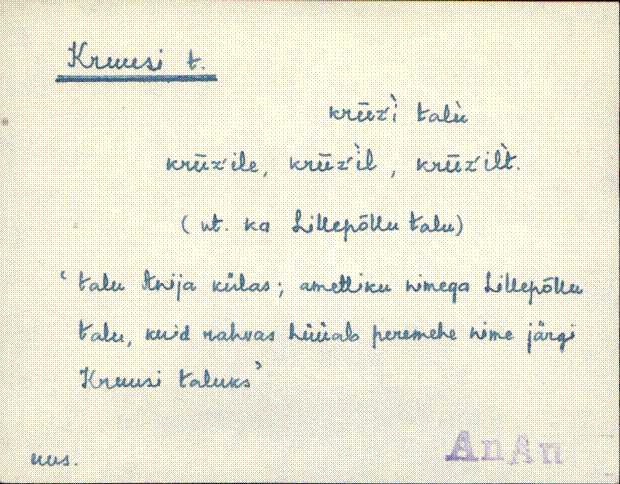 Kruusi t.
krūz´i̇̀ talù
krūz´ile, krūz´i̇̀l, krūz´ilt̀.
(vt. ka Lillepõllu talu)
‘talu Anija külas; ametliku nimega Lillepõllu
talu, kuid rahvas hüüab peremehe nime järgi
Kruusi taluks’
uus.
AnAn